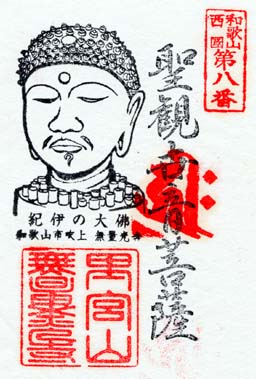 和歌山
西國
第八番
聖観世音菩薩
紀伊の大佛
和歌山市吹上 無量光寺